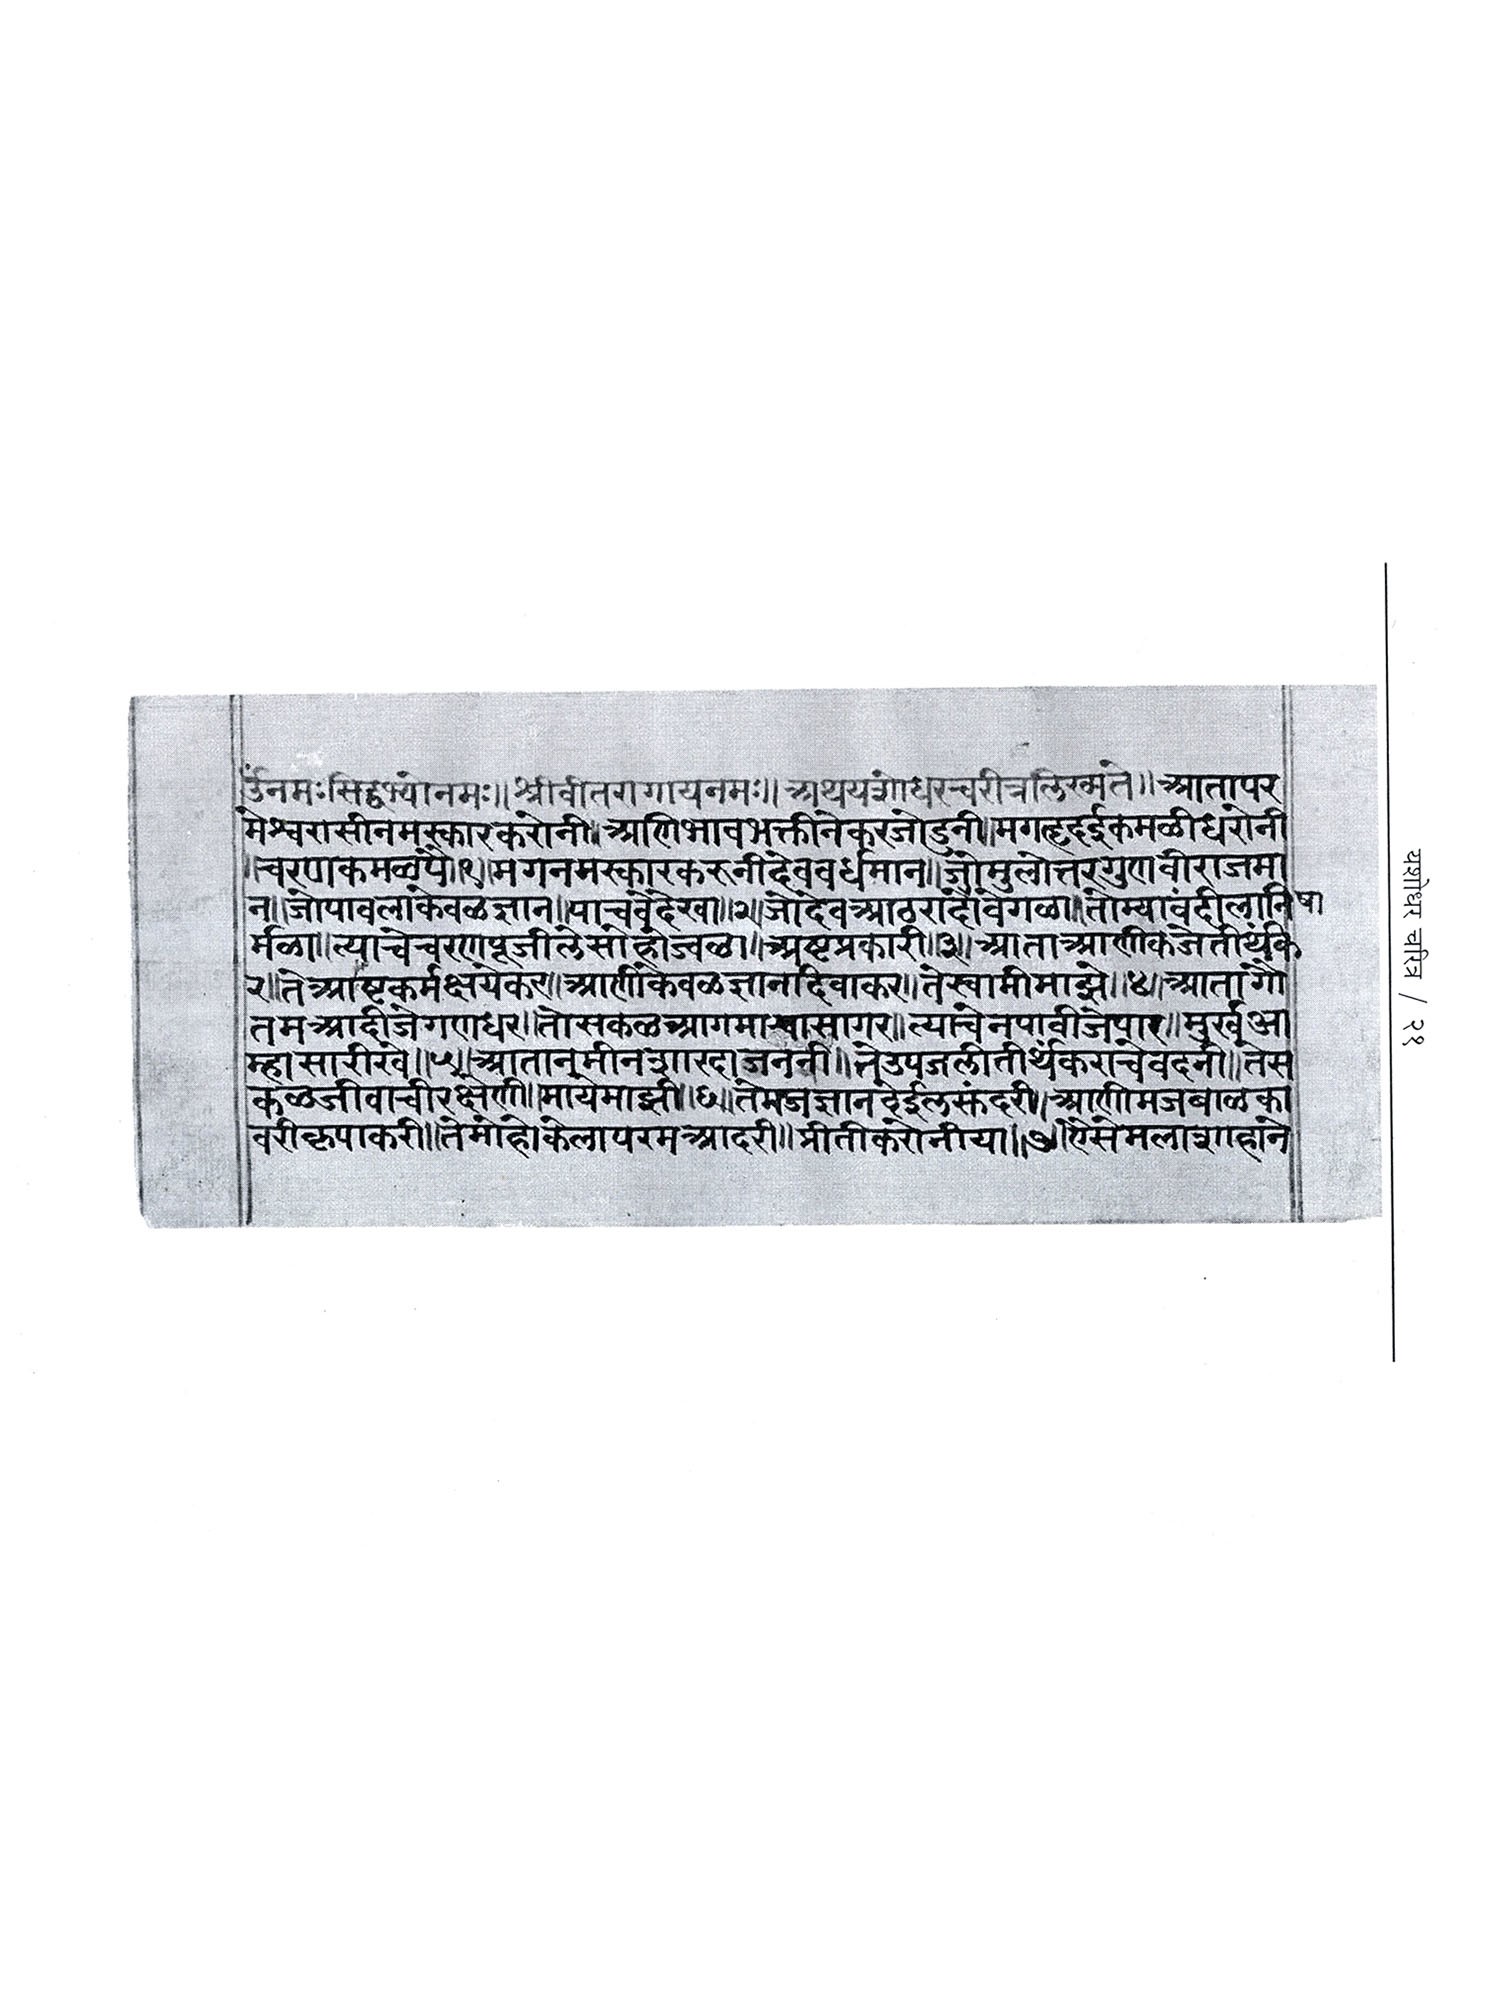 ॐनमःसिद्धेभ्योनमः॥श्रीवीतरागायनमः॥अथयशोधरचरीत्रलिख्यते॥आतापर
मेश्वरासीनमस्कारकरोनी॥आणिभावभक्तीनेकरजोडुनी॥मगत्हृदईकमळीधरोनी
॥चरणकमळपै॥१॥मगनमस्कारकरूनीदेववर्धमान॥जोमुलोत्तरगुणवीराजमा
न॥जोपावलाकेवळज्ञान॥पाचवेदेखा॥२॥जोदेवआठरादोषावेगळा॥तोम्यावंदीलानि
र्मळा॥त्याचेचरणपूजीलेसोहोज्वळा॥अष्टप्रकारी॥३॥आताआणीकजेतीर्थंक
र॥तेआष्टकर्मक्षयेकर॥आणीकेवळज्ञानदिवाकर॥तेस्वामीमाझे॥४॥आतागौ
तमआदीजेगणधर॥तोसकळआगमाचासागर॥त्याचेनपावीजेपार॥मुर्खआ
म्हासारीखे॥५॥आतानमीनशारदाजननी॥तेउपजलीतीर्थंकराचेवदनी॥तेस
कळजीवाचीरक्षेणी॥मायेमाझी॥६॥तेमजज्ञानदेईल॥आणीमजबाळका
वरीकृपाकरी॥तेमोहोकेलापरमआदरी॥प्रीतीकरोनीया॥७॥ऐसेमलाशाहाने
यशोधर चरित्र / २१